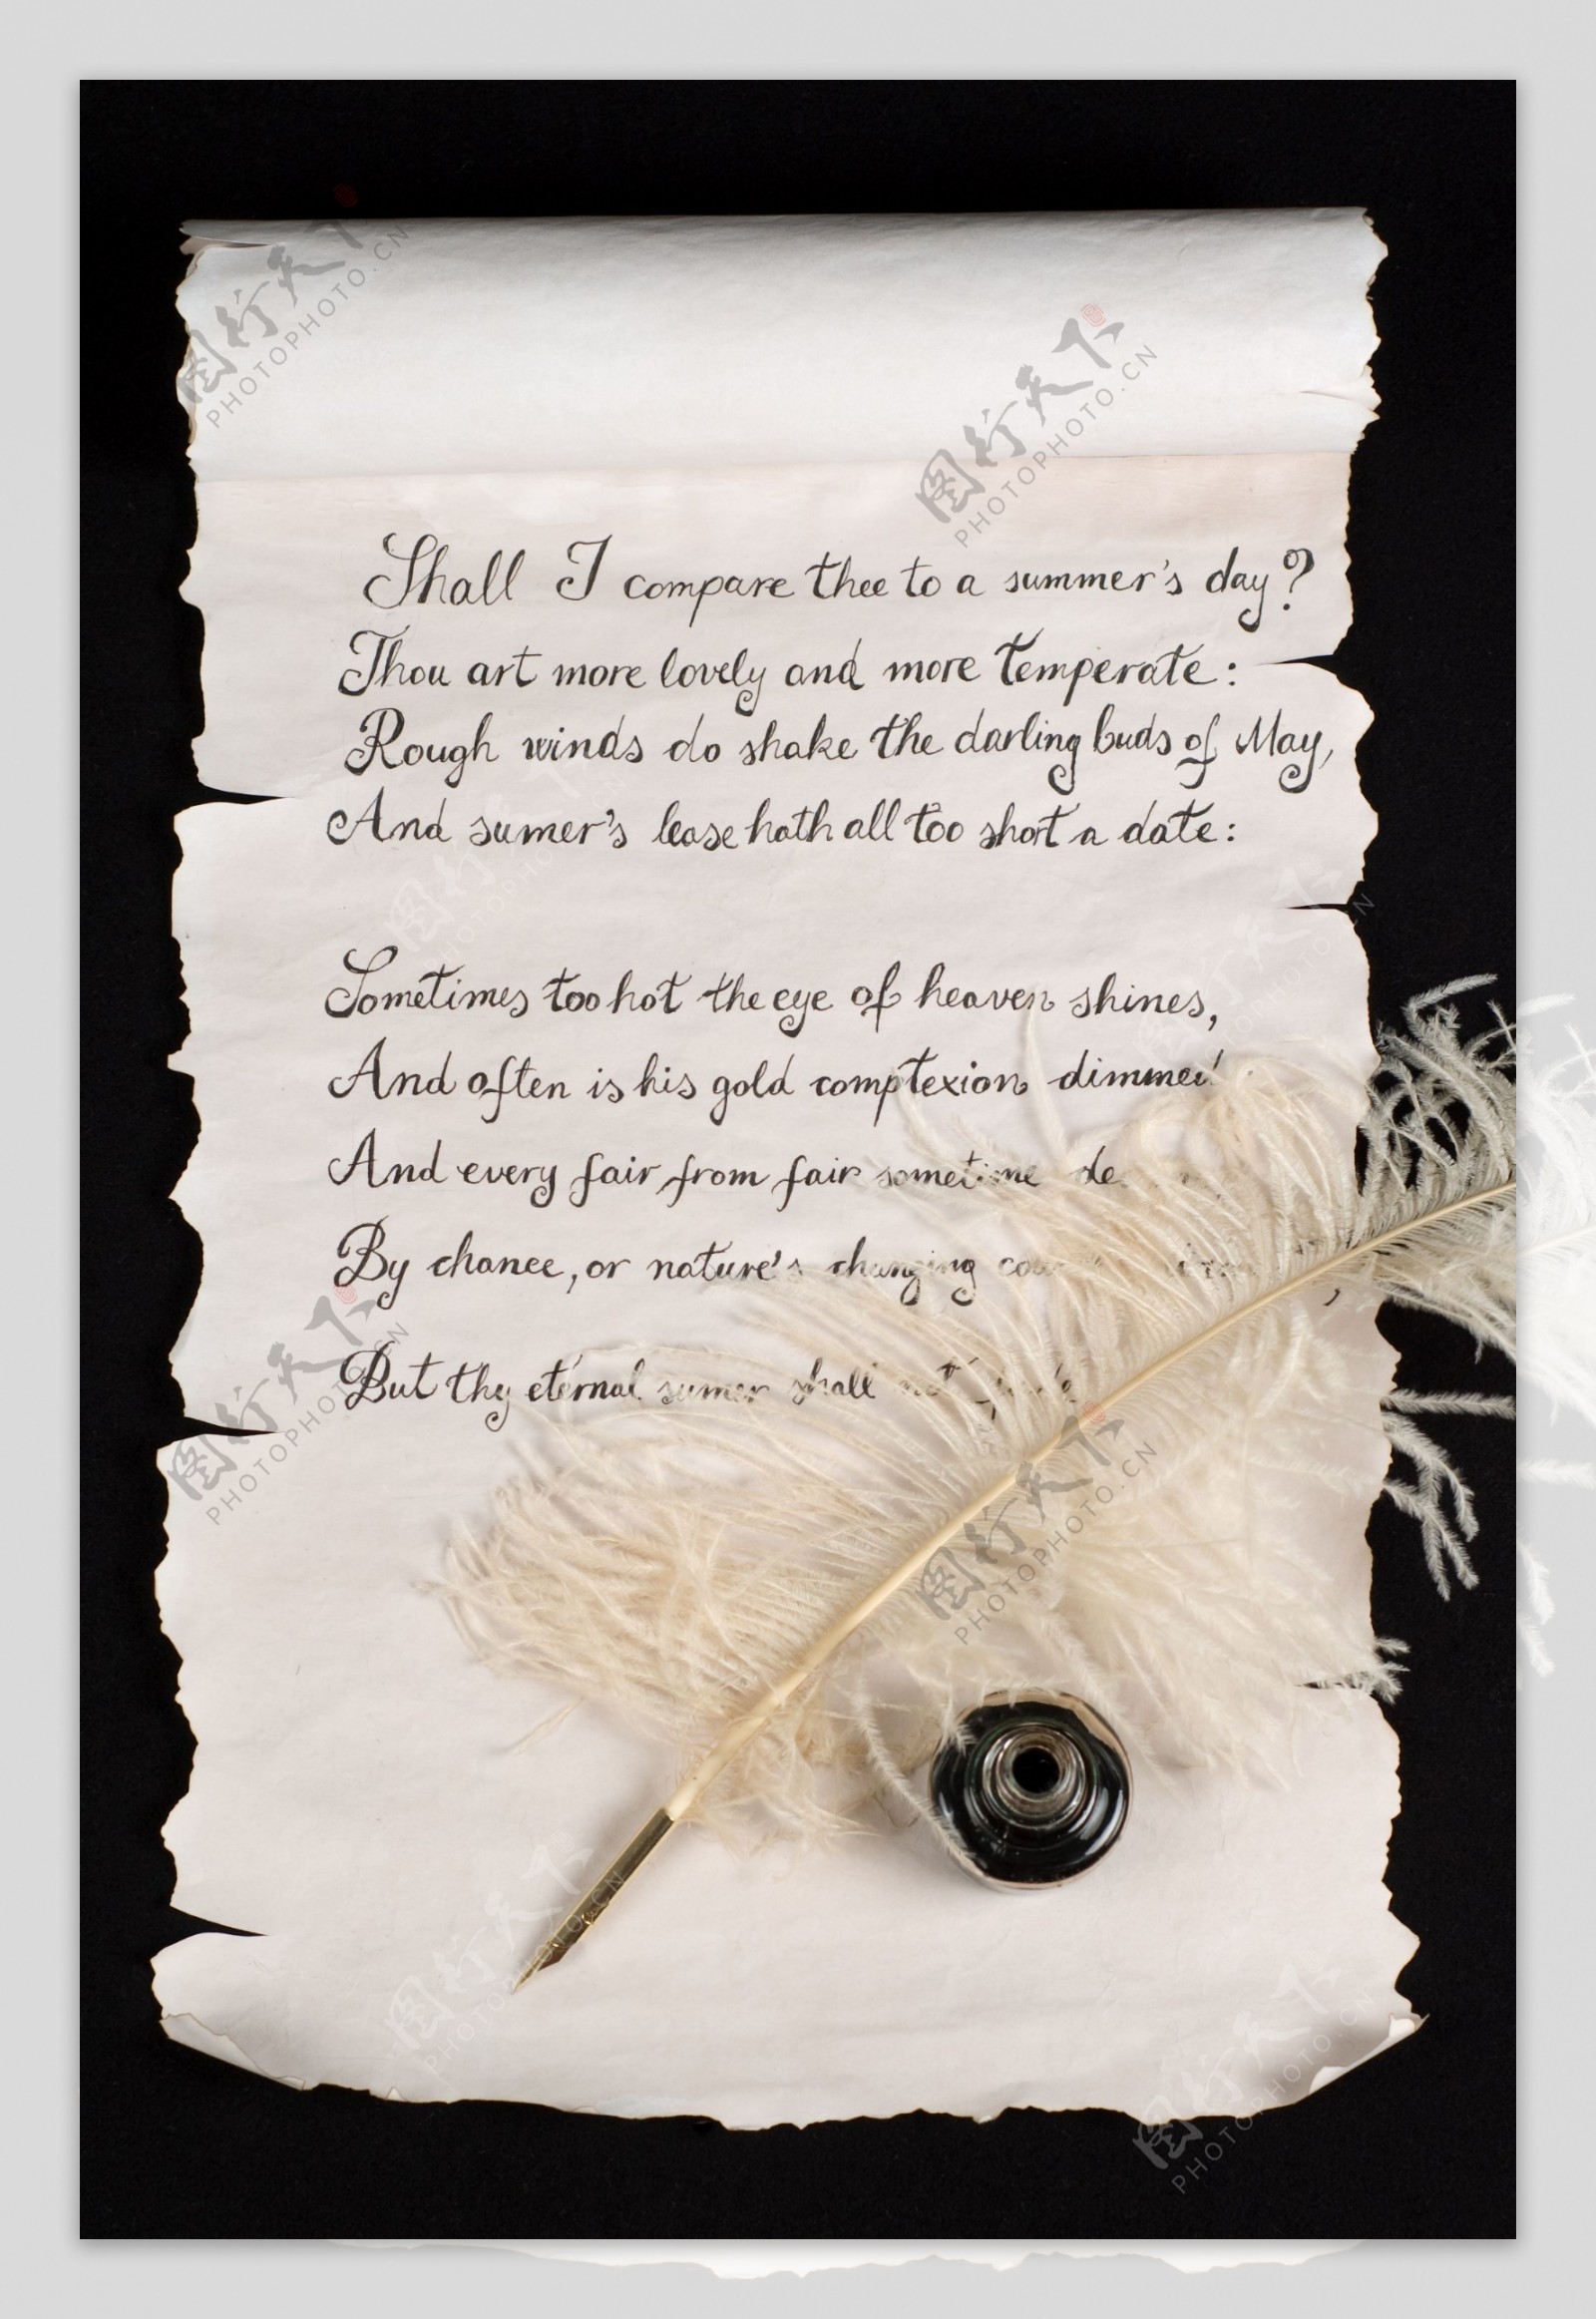 Shall I compare thee to a summer's day?
Thou art more lovely and more temperate:
Rough winds do shake the darling buds of May,
And sumer's lease hath all too short a date:
Sometimes too hot the eye of heaven shines,
And often is his gold comptexion dimmed
And every fair from fair sometime
By chance, or nature's changing
But thy eternal sumer shall not
图行天下
PHOTOPHOTO.CN